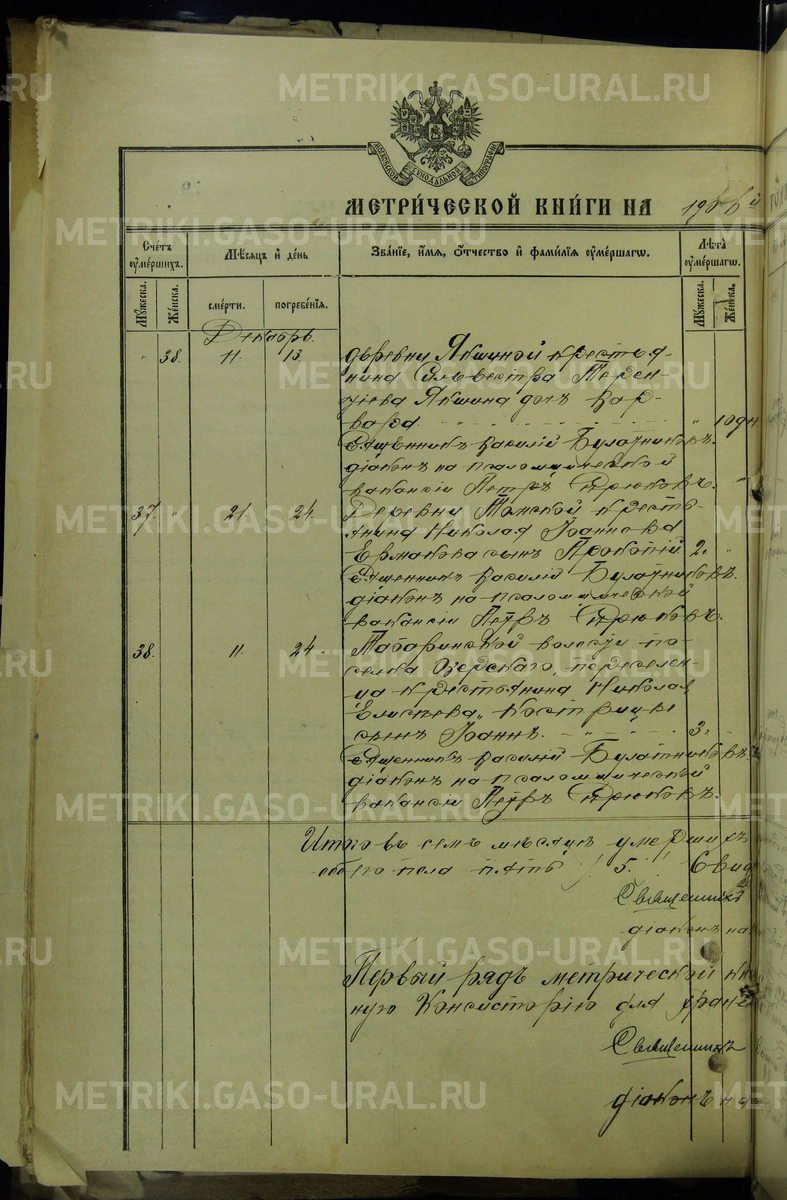 МОСКОВСКОЙ СѴНОДАЛЬНОЙ ТИПОГРАФІИ
МЕТРИ́ЧЕСКОЙ КНИ́ГИ НА 1906 й
Сче́тъ ᲂу҆ме́ршихъ. Мѣ́сяцъ и҆ де́нь Зва́нїе, и҆́мѧ, ѻ҆́тчество и҆ фами́лїѧ ᲂу҆ме́ршагѡ. Лѣ́та ᲂу҆ме́ршагѡ.
Мꙋ́жеска. Же́нска. сме́рти. погребе́нїѧ. Мꙋ́жеска. Же́нска.
Декабрь.
" 38. 11. 13 деревни Якшиной крестья-
нина Сильвестра Терен-
тіева Якшина дочь Вар-
вара. " 10 дн
Священникъ Василій Булатниковъ.
діаконъ на псаломщической
вакансіи Петръ Крюковъ.
37. " 21. 24. Деревни Томской кресть-
янина Николая Іоаннова
Ермакова сынъ Прокопій 2. "
Священникъ Василій Булатниковъ.
діаконъ на псаломщической
вакансіи Петръ Крюковъ.
38. 11. 24. Табаринской волости по-
селка Озерскаго, переселен-
ца крестьянина Николая
Елисѣева
сынъ Іоаннъ. 3. "
Священникъ Василій Булатниковъ
діаконъ на псаломщической
вакансіи Петръ Крюковъ.
Итого въ семъ мѣсяцѣ умершихъ
обоего пола пять / 5. / Свид
Священникъ
діаконъ на
Первый рядъ метрической кни
ную Консисторію для хранен
Священникъ
діаконъ на
METRIKI.GASO-URAL.RU